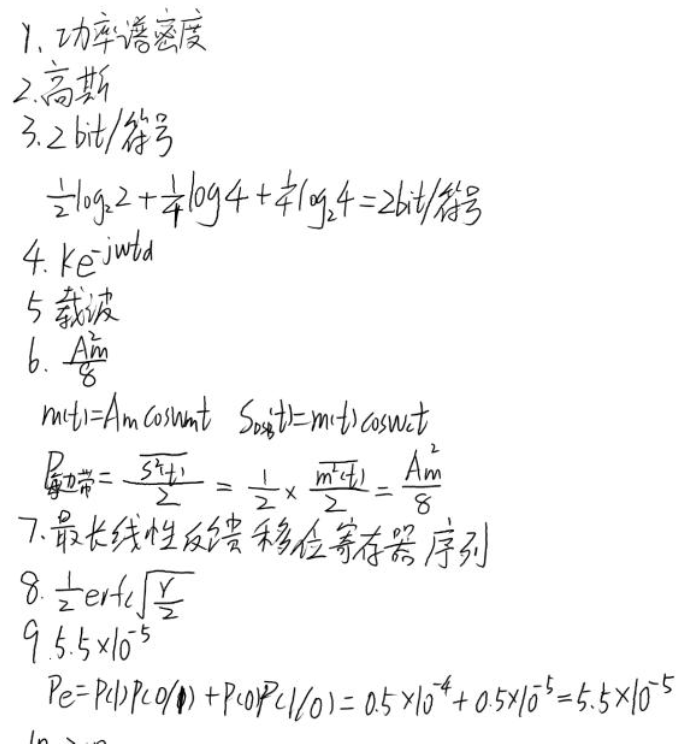 1、功率谱密度
2.高斯
3.2bit/符号
1/2 log₂2 + 1/4 log 4 + 1/4 log₂4 = 2bit/符号
4. Ke^(-jwtd)
5 载波
6. Am²/8
m(t)=Am coswmt S_DSB(t)=m(t)coswct
P带= s²(t)/2 = 1/2 × m²(t)/2 = Am²/8
7.最长线性反馈移位寄存器序列
8. 1/2 erfc√(r/2)
9.5.5×10⁻⁵
Pe=P(1)P(0/1)+P(0)P(1/0)=0.5×10⁻⁴+0.5×10⁻⁵=5.5×10⁻⁵